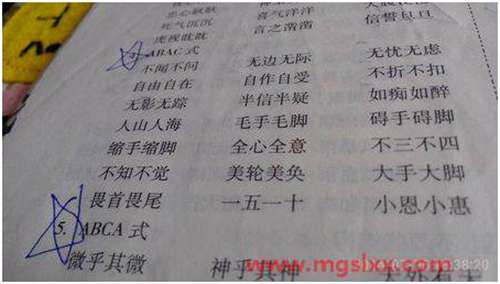 忠心耿耿
死气沉沉 喜气洋洋
虎视眈眈 言之凿凿 信誓旦旦
ABAC 式
不闻不问 无边无际 无忧无虑
自由自在 自作自受 不折不扣
无影无踪 半信半疑 如痴如醉
人山人海 毛手毛脚 碍手碍脚
缩手缩脚 全心全意 不三不四
不知不觉 美轮美奂 大手大脚
畏首畏尾 一五一十 小恩小惠
5. ABCA 式
微乎其微 神乎其神 天外有天
www.mgslxx.com
38:20